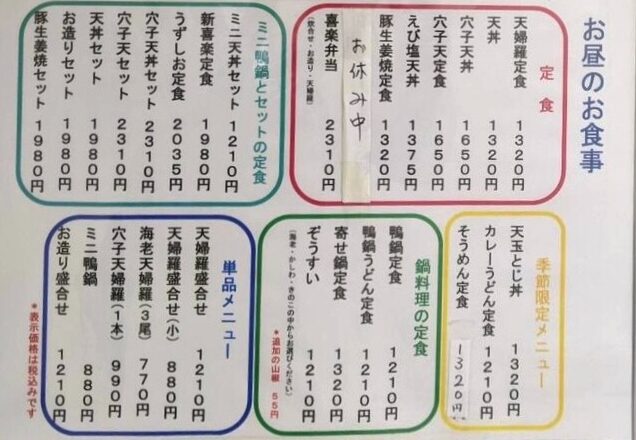 お昼のお食事
定食
天婦羅定食 1320円
天丼 1320円
穴子天丼 1650円
穴子天定食 1650円
えび塩天丼 1375円
豚生姜焼定食 1320円
お休み中
喜楽弁当 2310円
(炊合せ・お造り・天婦羅)
ミニ鴨鍋とセットの定食
ミニ天丼セット 1210円
新喜楽定食 1980円
うずしお定食 2035円
穴子天丼セット 2310円
穴子天セット 2310円
天丼セット 1980円
お造りセット 1980円
豚生姜焼セット 1980円
季節限定メニュー
天玉とじ丼 1320円
カレーうどん定食 1210円
そうめん定食 1320円
鍋料理の定食
鴨鍋定食 1210円
鴨鍋うどん定食 1210円
寄せ鍋定食 1320円
ぞうすい 1210円
(海老・かしわ・きのこの中からお選びください)
*追加の山椒 55円
単品メニュー
天婦羅盛合せ 1210円
天婦羅盛合せ(小) 880円
海老天婦羅(3尾) 770円
穴子天婦羅(1本) 990円
ミニ鴨鍋 880円
お造り盛合せ 1210円
*表示価格は税込みです